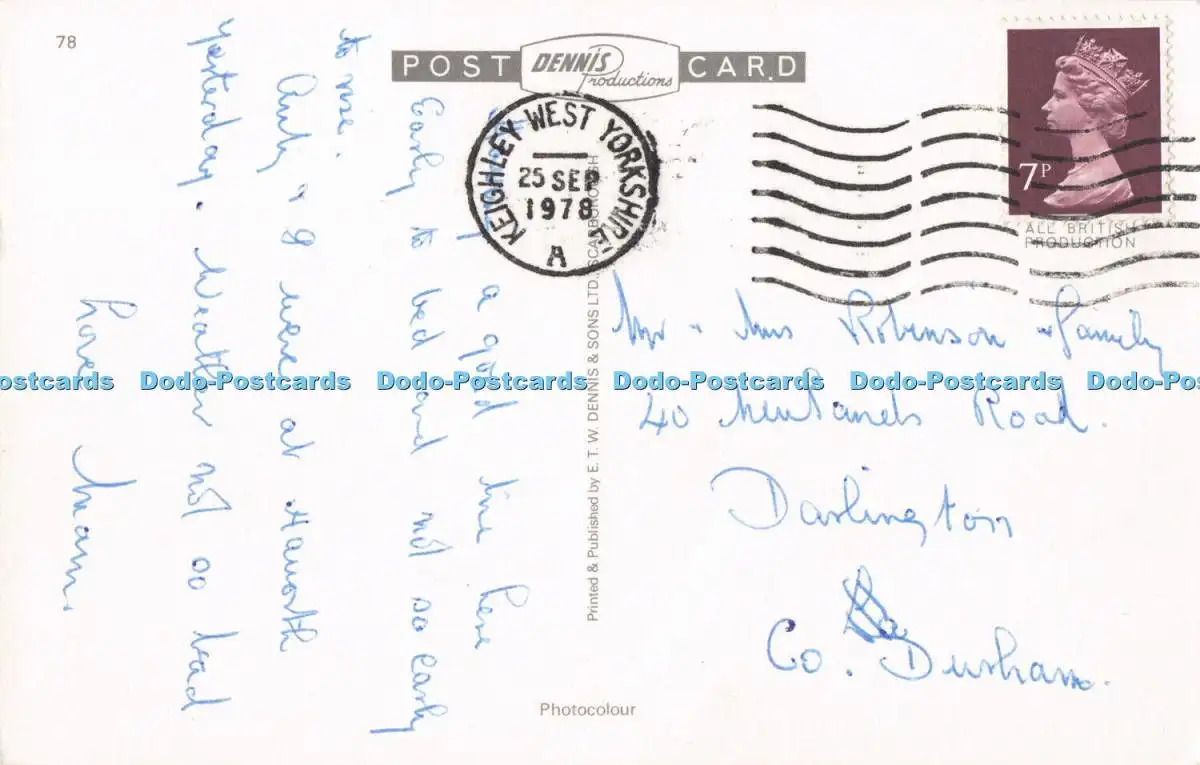 78
POST CARD
DENNIS
Productions
KEIGHLEY WEST YORKSHIRE
25 SEP
1978
A
7P
ALL BRITISH
PRODUCTION
a good time here
Early to bed and not so early
to rise.
& I were at Haworth
yesterday. Weather not oo bad
Love Mam.
Printed & Published by E. T. W. DENNIS & SONS LTD., SCARBOROUGH
Mr & Mrs Robinson & Family
40 Road.
Darlington
Co. Durham.
Photocolour
Dodo-Postcards Dodo-Postcards Dodo-Postcards Dodo-Postcards Dodo-Postcards